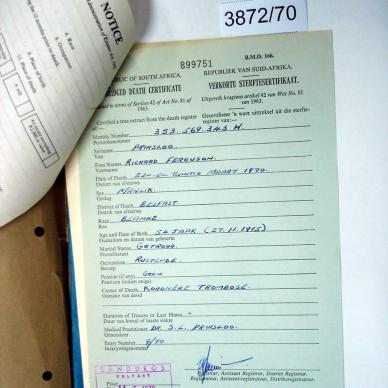 NOTICE
3872/70
899751
B.M.D. 166.
REPUBLIC OF SOUTH AFRICA.
REPUBLIEK VAN SUID-AFRIKA.
ABRIDGED DEATH CERTIFICATE
VERKORTE STERFTESERTIFIKAAT.
in terms of Section 42 of Act No. 81 of 1963.
Uitgereik kragtens artikel 42 van Wet No. 81 van 1963.
Certified a true extract from the death register of:—
Gesertifiseer 'n ware uittreksel uit die sterfteregister van:—
Identity Number 353.569.343 W.
Persoonsnommer
Surname PRINSLOO.
Van
First Names RICHARD FERGUSON.
Voorname
Date of Death EEN-EN-TWINTIG MAART 1970.
Datum van afsterwe
Sex MANLIK.
Geslag
District of Death BELFAST
Distrik van afsterwe
Race BLANKE
Ras
Age and Date of Birth 54 JAAR (27.11.1915)
Ouderdom en datum van geboorte
Marital Status GETROUD.
Huwelikstaat
Occupation RUSTENDE
Beroep
Pension (if any) GEEN.
Pensioen (indien enige)
Causes of Death KORONÊRE TROMBOSE.
Oorsake van dood
Duration of Disease or Last Illness -
Duur van kwaal of laaste siekte
Medical Practitioner DR. S.L. PRINSLOO.
Geneesheer
Entry Number 9/70
Inskrywingsnommer
LANDDROS
BELFAST
1970
Registrar, Assistant Registrar, District Registrar.
Registrateur, Assistent-registrateur, Distriksregistrateur.